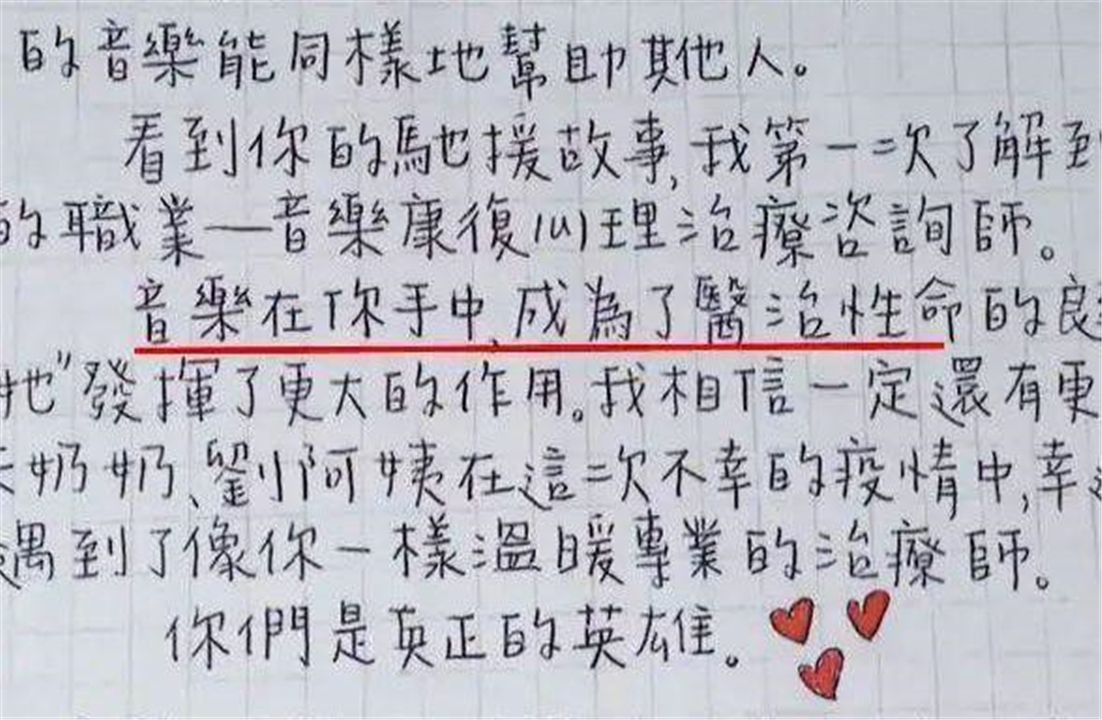 的音樂能同樣地幫助其他人。
看到你的馳援故事,我第一次了解到
的職業—音樂康復心理治療咨詢師。
音樂在你手中,成為了醫治性命的良
她"發揮了更大的作用。我相信一定還有更
奶奶、劉阿姨在這二次不幸的疫情中,幸
遇到了像你一樣溫暖專業的治療師。
你們是真正的英雄。